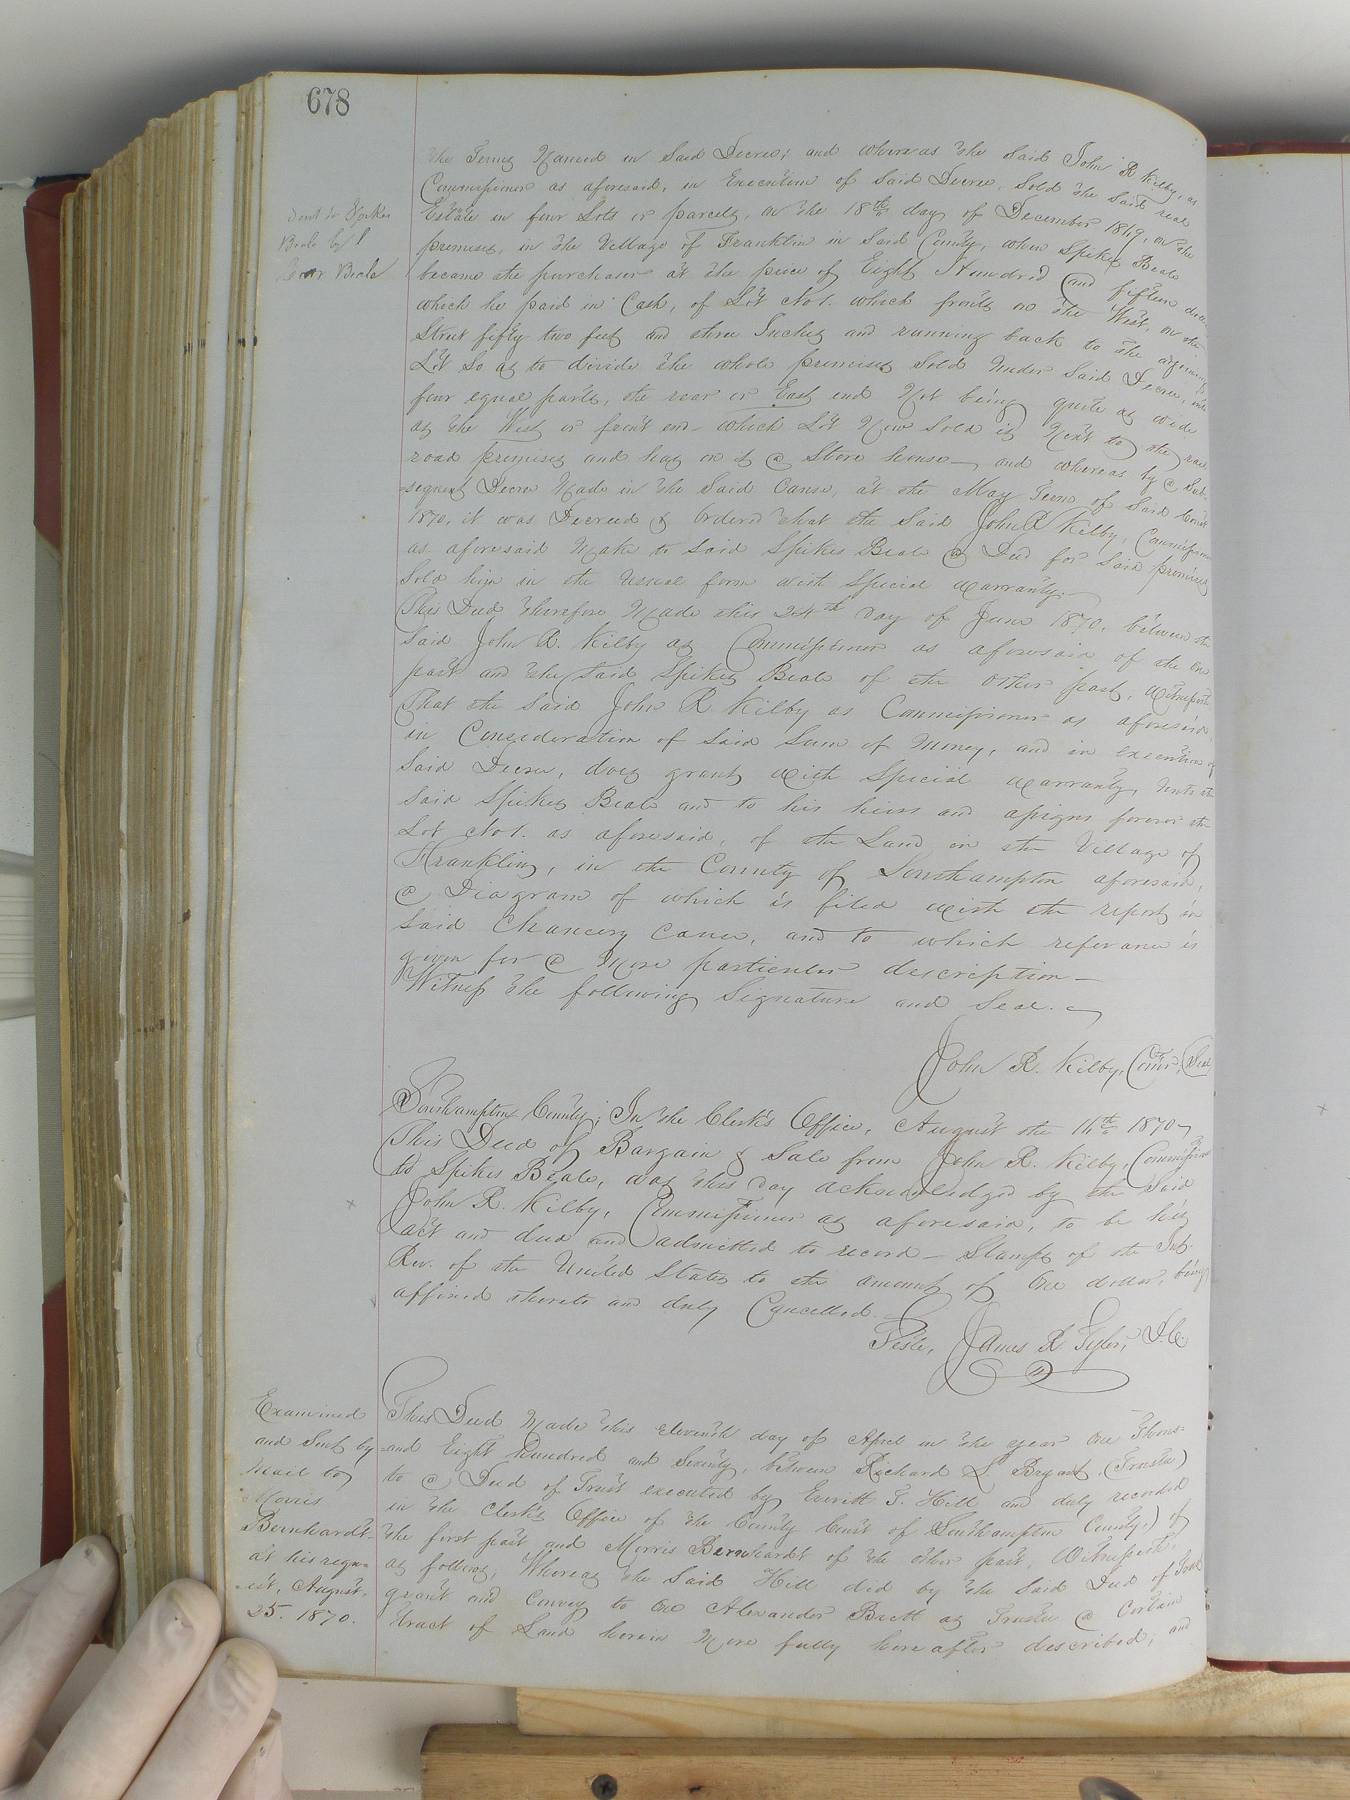 678
the Terms Named in Said Decree; and whereas the Said John R Kilby, as
Commissioner as aforesaid, in Execution of Said Decree, Sold the Said real
Estate in four Lots or parcels, on the 18th day of December 1869, on the
premises, in the Village of Franklin in Said County, when Spikes Beale
became the purchaser at the price of Eight Hundred and fifteen
which he paid in Cash, of Lot No 1. which fronts on the West, on the
Street fifty two feet and three Inches and running back to the
Lot So as to divide the whole premises Sold Under Said Decree, into
four equal parts, the rear or East end Not being quite as wide
as the West or front end - which Lot Now Sold is Next to the rail
road premises and has on it a Store house — and whereas by a Sub-
sequent Decree Made in the Said Cause, at the May Term of Said Court
1870, it was Decreed & Ordered that the Said John R Kilby, Commissioner
as aforesaid Make to Said Spikes Beale a Deed for Said premises
Sold him in the Usual form with Special warranty: —
This Deed therefore Made this 24th day of June 1870. between the
Said John R. Kilby as Commissioner as aforesaid of the One
part and the Said Spikes Beale of the other part, Witnesseth
That the Said John R Kilby as Commissioner as aforesaid,
in Consideration of Said Sum of Money, and in execution of
Said Decree, does grant with Special warranty, Unto the
Said Spikes Beale and to his heirs and assigns forever the
Lot No 1. as aforesaid, of the Land in the Village of
Franklin, in the County of Southampton aforesaid,
a Diagram of which is filed with the report in
Said Chancery Cause, and to which reference is
given for a More particular description —
Witness the following Signature and Seal. —
John R. Kilby, Comr, Seal
Southampton County; In the Clerk's Office, August the 11th 1870
This Deed of Bargain & Sale from John R. Kilby, Commissioner
to Spikes Beale, was this day acknowledged by the Said
John R. Kilby, Commissioner as aforesaid, to be his
act and deed and admitted to record — Stamps of the Int.
Rev. of the United States to the amount of One dollar, being
affixed thereto and duly Cancelled.
Teste, James R Tyler, D.C.
This Deed Made this eleventh day of April in the year One Thous-
and Eight hundred and Seventy, between Richard L. Bryant (Trustee)
to a Deed of Trust executed by Everitt T. Hill and duly recorded
in the Clerk's Office of the County Court of Southampton County,) of
the first part and Morris Bernhardt of the other part, Witnesseth,
as follows, Whereas the Said Hill did by the Said Deed of Trust
grant and Convey to One Alexander Brett as Trustee a Certain
tract of Land herein More fully hereafter described; and
Sent to Spikes
Beale by
Beale
Examined
and Sent by
Mail to
Morris
Bernhardt
at his requ-
est, August
25. 1870.